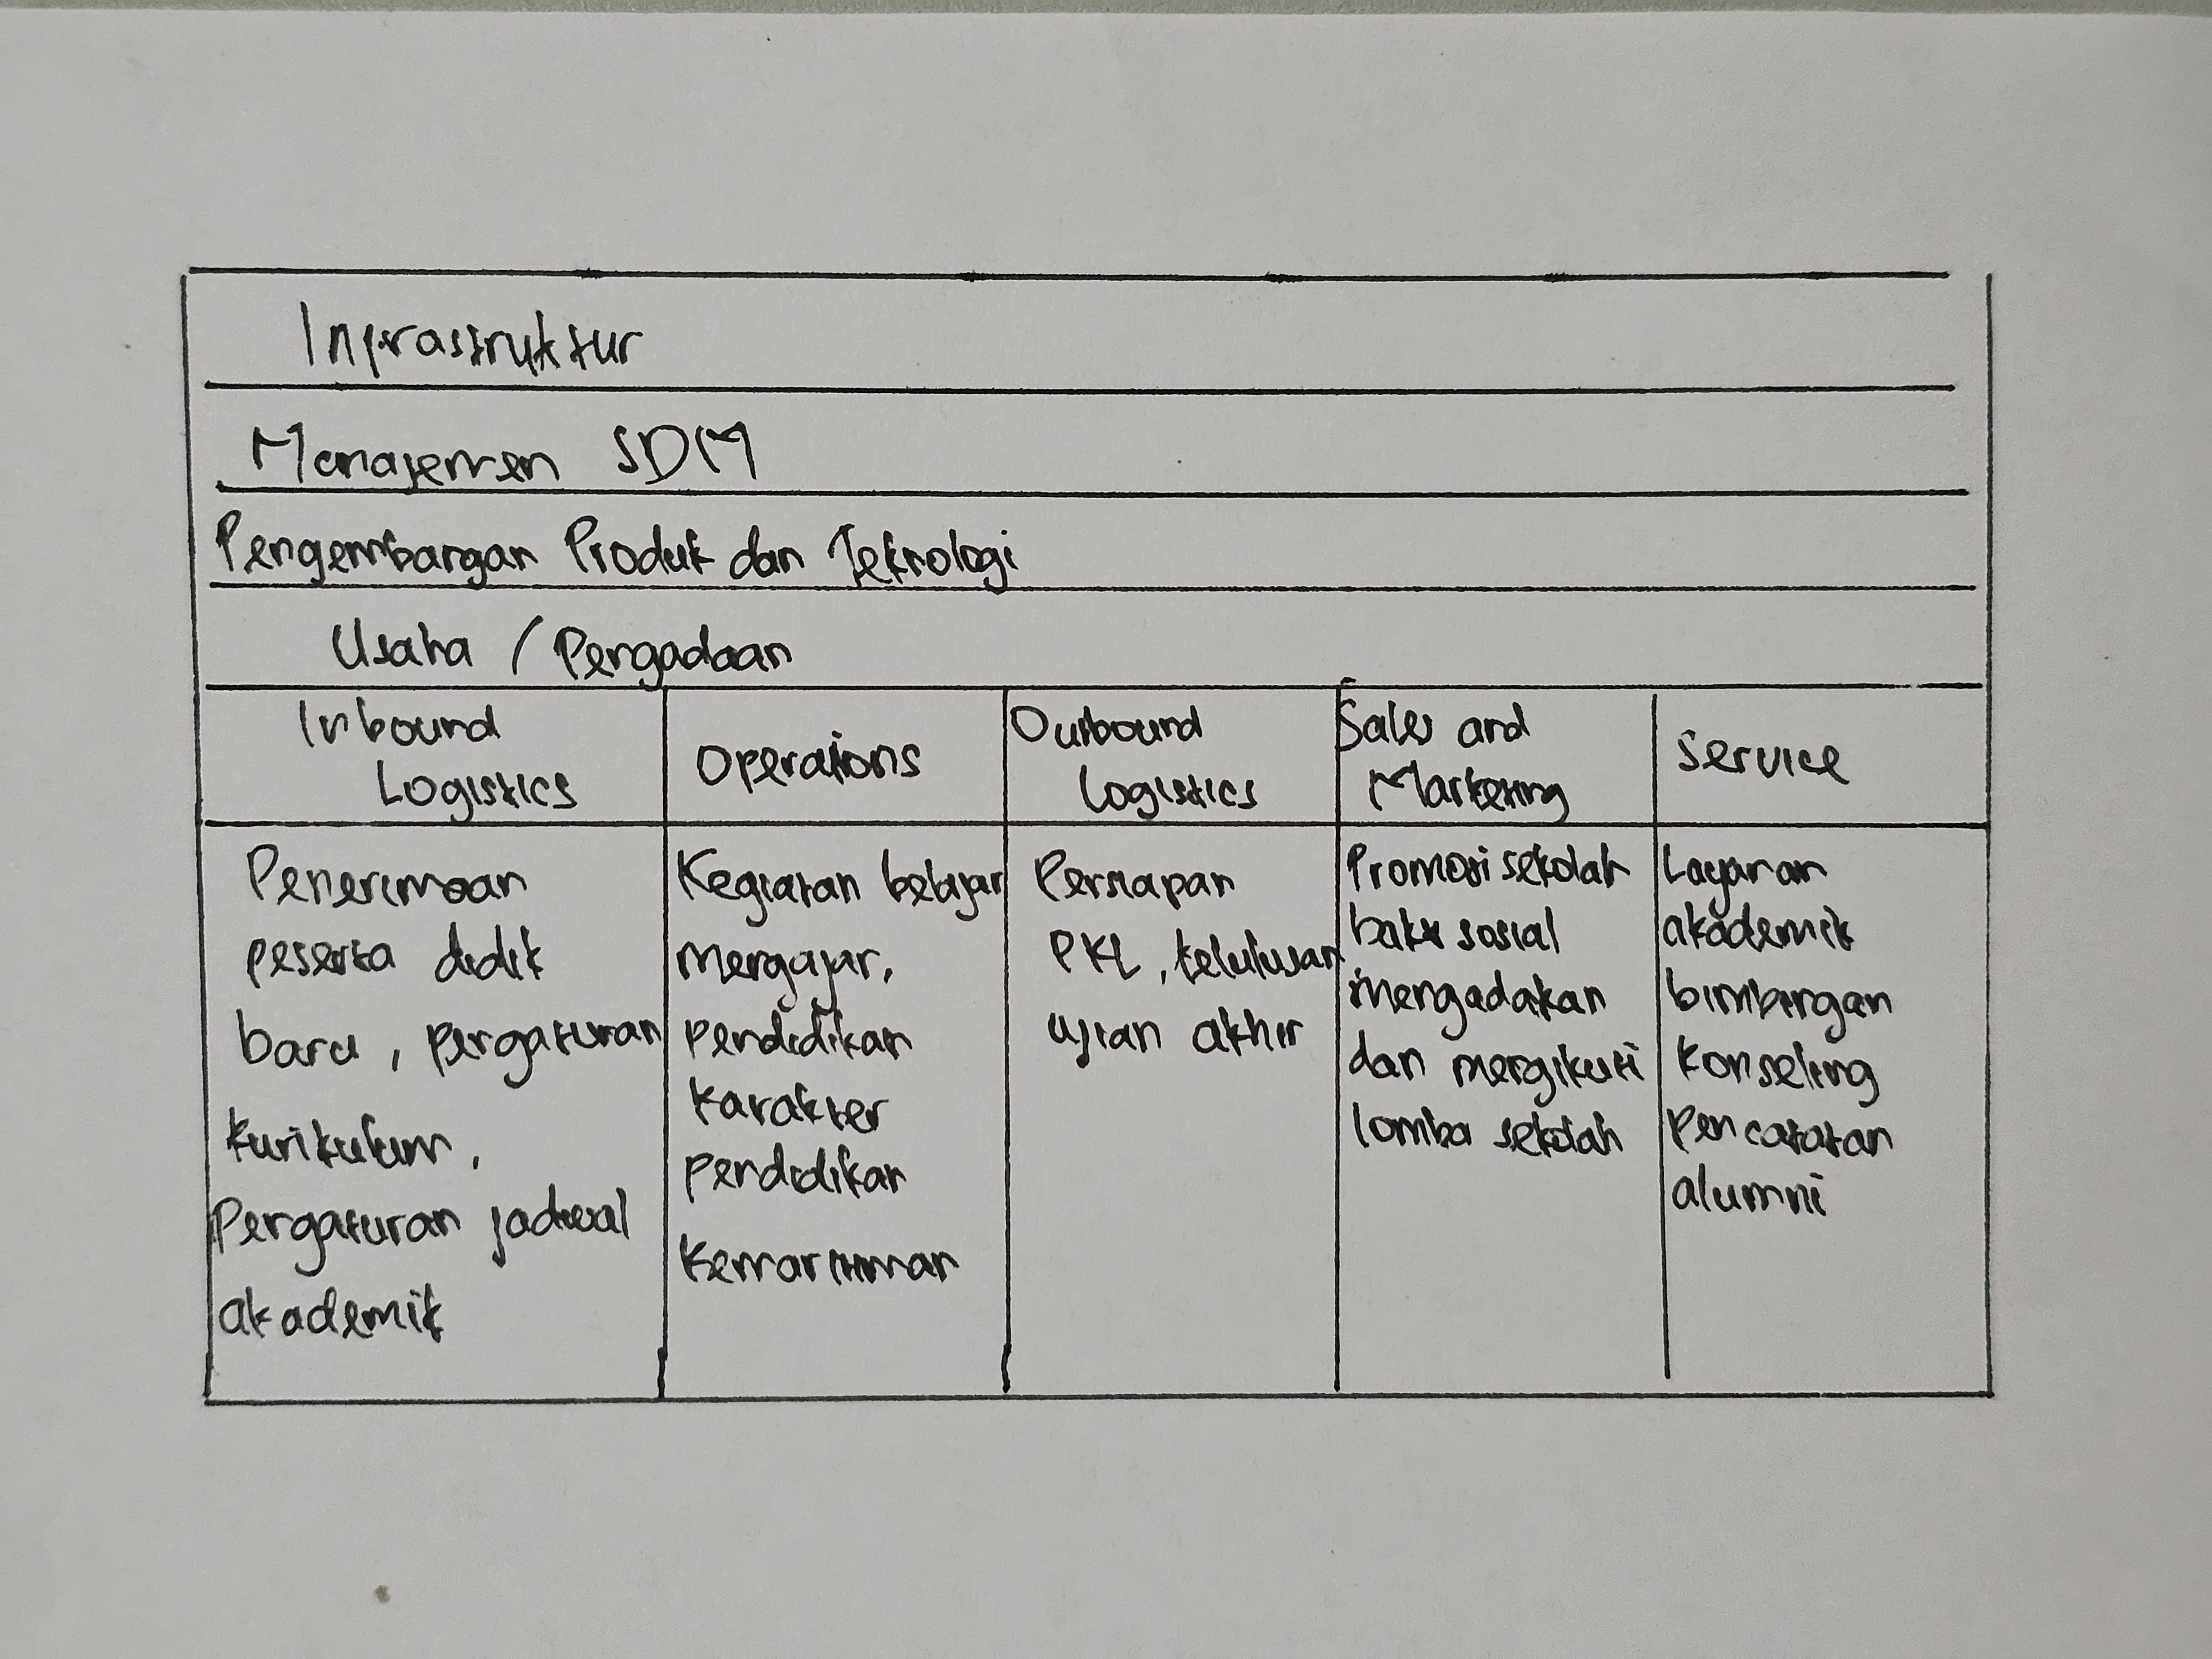 Infrastruktur
Manajemen SDM
Pengembangan Produk dan Teknologi
Usaha / Pengadaan
Inbound
Logistics
Operations
Outbound
Logistics
Sales and
Marketing
Service
Penerimaan
peserta didik
baru, pengaturan
kurikulum,
Pengaturan jadwal
akademik
Kegiatan belajar
mengajar,
pendidikan
karakter
pendidikan
Kemaritiman
Persiapan
PKL, kelulusan
ujian akhir
Promosi sekolah
bakti sosial
mengadakan
dan mengikuti
lomba sekolah
Layanan
akademik
bimbingan
konseling
pencatatan
alumni